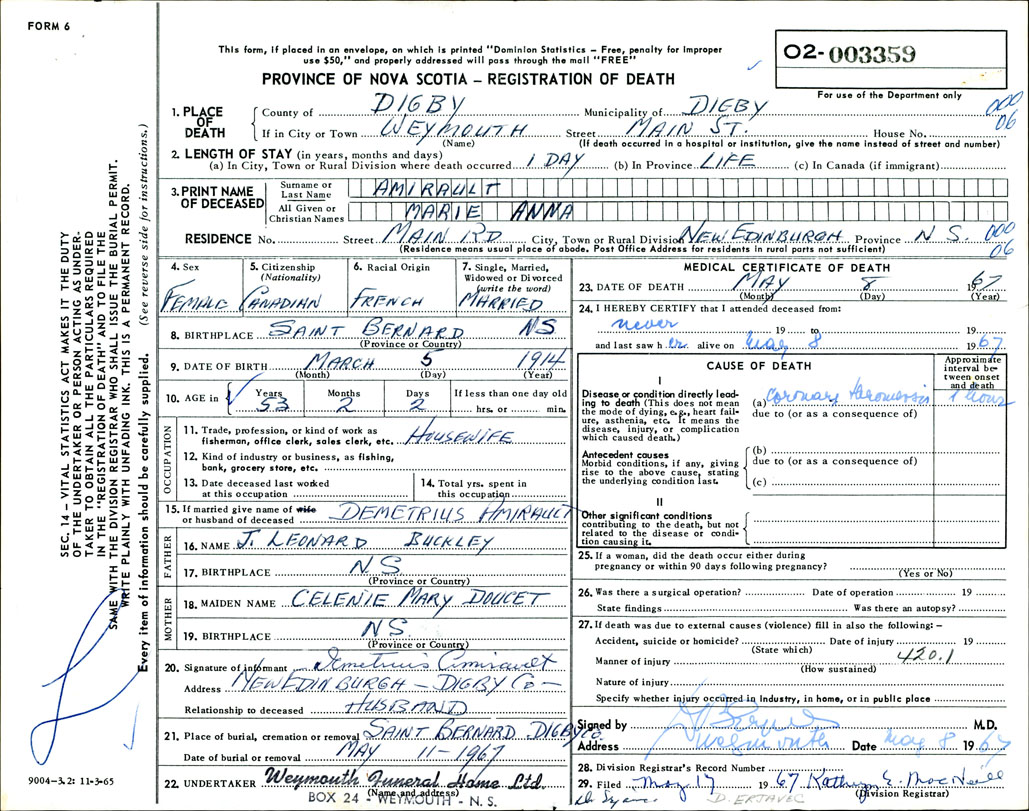 FORM 6
This form, if placed in an envelope, on which is printed "Dominion Statistics – Free, penalty for improper
use $50," and properly addressed will pass through the mail "FREE"
PROVINCE OF NOVA SCOTIA – REGISTRATION OF DEATH
02-003359
For use of the Department only
000
06
1. PLACE OF DEATH
County of DIGBY Municipality of DIGBY
If in City or Town WEYMOUTH Street MAIN ST. House No.
(Name) (If death occurred in a hospital or institution, give the name instead of street and number)
2. LENGTH OF STAY (in years, months and days)
(a) In City, Town or Rural Division where death occurred 1 DAY (b) In Province LIFE (c) In Canada (if immigrant)
3. PRINT NAME OF DECEASED
Surname or Last Name AMIRAULT
All Given or Christian Names MARIE ANNA
RESIDENCE No. Street MAIN RD City, Town or Rural Division NEW EDINBURGH Province N S. 000
06
(Residence means usual place of abode. Post Office Address for residents in rural parts not sufficient)
4. Sex
FEMALE
5. Citizenship (Nationality)
CANADIAN
6. Racial Origin
FRENCH
7. Single, Married, Widowed or Divorced (write the word)
MARRIED
8. BIRTHPLACE SAINT BERNARD NS
(Province or Country)
9. DATE OF BIRTH MARCH 5 1914
(Month) (Day) (Year)
10. AGE in
Years 53
Months 2
Days 2
If less than one day old
hrs. or min.
OCCUPATION
11. Trade, profession, or kind of work as
fisherman, office clerk, sales clerk, etc. HOUSEWIFE
12. Kind of industry or business, as fishing,
bank, grocery store, etc.
13. Date deceased last worked
at this occupation
14. Total yrs. spent in
this occupation
15. If married give name of wife
or husband of deceased DEMETRIUS AMIRAULT
FATHER
16. NAME J. LEONARD BUCKLEY
17. BIRTHPLACE N.S.
(Province or Country)
MOTHER
18. MAIDEN NAME CELENIE MARY DOUCET
19. BIRTHPLACE NS.
(Province or Country)
20. Signature of informant Demetrius Amirault
Address NEW EDINBURGH – DIGBY CO –
Relationship to deceased HUSBAND
21. Place of burial, cremation or removal SAINT BERNARD DIGBY CO.
Date of burial or removal MAY 11-1967
22. UNDERTAKER Weymouth Funeral Home Ltd.
(Name and address)
BOX 24 - WEYMOUTH - N. S.
MEDICAL CERTIFICATE OF DEATH
23. DATE OF DEATH MAY 8 1967
(Month) (Day) (Year)
24. I HEREBY CERTIFY that I attended deceased from:
never 19 to 19
and last saw h er alive on May 8 1967
CAUSE OF DEATH
Approximate interval between onset and death
I
Disease or condition directly leading to death (This does not mean the mode of dying, e.g., heart failure, asthenia, etc. It means the disease, injury, or complication which caused death.)
(a) coronary thrombosis 1 hour
due to (or as a consequence of)
Antecedent causes
Morbid conditions, if any, giving rise to the above cause, stating the underlying condition last.
(b)
due to (or as a consequence of)
(c)
II
Other significant conditions
contributing to the death, but not related to the disease or condition causing it.
25. If a woman, did the death occur either during
pregnancy or within 90 days following pregnancy?
(Yes or No)
26. Was there a surgical operation? Date of operation 19
State findings Was there an autopsy?
27. If death was due to external causes (violence) fill in also the following: –
Accident, suicide or homicide? Date of injury 19
(State which)
Manner of injury 420.1
(How sustained)
Nature of injury
Specify whether injury occurred in Industry, in home, or in public place
Signed by M.D.
Address Weymouth Date May 8 1967
28. Division Registrar's Record Number
29. Filed May 17 1967 Kathryn E. MacNeill
(Division Registrar)
D. ERJAVEC
SEC. 14 – VITAL STATISTICS ACT MAKES IT THE DUTY
OF THE UNDERTAKER OR PERSON ACTING AS UNDER-
TAKER TO OBTAIN ALL THE PARTICULARS REQUIRED
IN THE "REGISTRATION OF DEATH" AND TO FILE THE
SAME WITH THE DIVISION REGISTRAR WHO SHALL ISSUE THE BURIAL PERMIT.
WRITE PLAINLY WITH UNFADING INK. THIS IS A PERMANENT RECORD.
Every item of information should be carefully supplied. (See reverse side for instructions.)
9004-3.2: 11-3-65